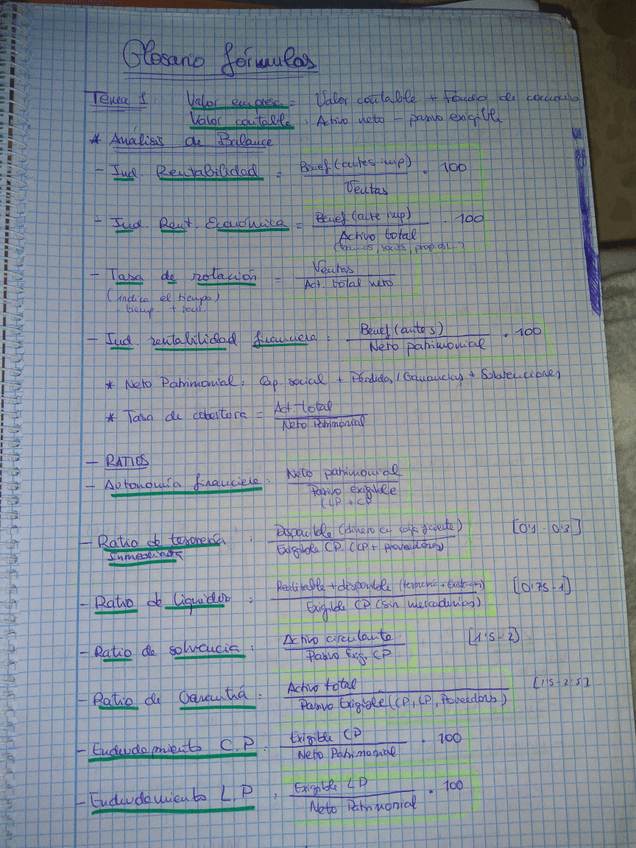 Glosario fórmulas
Tema 1: Valor empresa = Valor contable + Fondo de comercio
Valor contable: Activo neto - pasivo exigible
* Análisis de Balance
- Ind Rentabilidad = Benef (antes imp) / Ventas · 100
- Ind. Rent. Económica = Benef (ante imp) / Activo total · 100
- Tasa de rotación = Ventas / Act. total neto
(indica el tiempo)
- tiemp + real.
- Ind rentabilidad financiera = Benef (antes) / Neto patrimonial · 100
* Neto Patrimonial: Cap social + Pérdidas/Ganancias + Subvenciones
* Tasa de cobertura = Act. total / Neto Patrimonial
- RATIOS
- Autonomía financiera: Neto patrimonial / Pasivo exigible
LP + CP
- Ratio de tesorería : Disponible (dinero en caja, ) / Exigible CP (CP + Proveedores) [0'1 - 0'3]
Inmediata
- Ratio de liquidez : Realizable + disponible / Exigible CP (sin mercaderías) [0'75 - 1]
- Ratio de solvencia : Activo circulante / Pasivo Exig. CP [1'5 - 2]
- Ratio de Garantía : Activo total / Pasivo Exigible (CP, LP, Proveedores) [1'5 - 2'5]
- Endeudamiento C.P : Exigible CP / Neto Patrimonial · 100
- Endeudamiento L.P : Exigible LP / Neto Patrimonial · 100